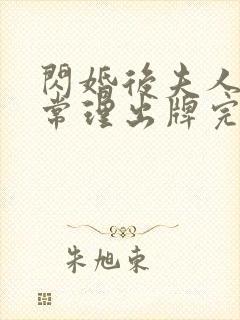 閃婚後夫人
常理出牌完
朱旭東